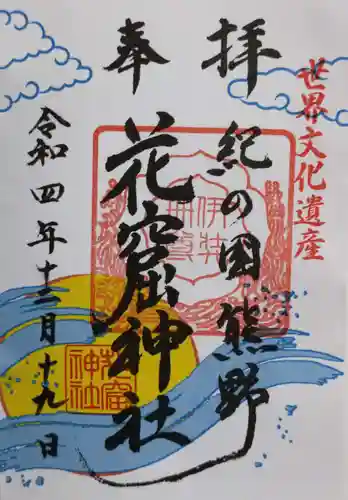 世界文化遺産
奉拝
紀の国熊野
花窟神社
令和四年十二月十九日
花窟
神社